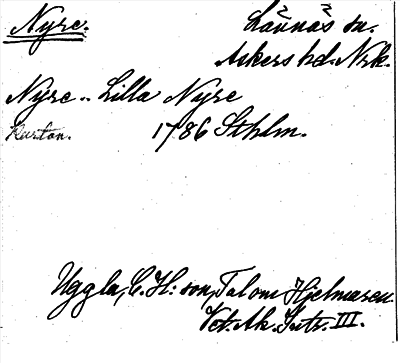 Nyre.
Lännäs sn.
Askers hd. Nrk.
Nyre .. Lilla Nyre
Kartan. 1786 Sthlm.
Uggla, C. H:son, Tal om Hjelmaren.
Vet. Ak. Intr. III.